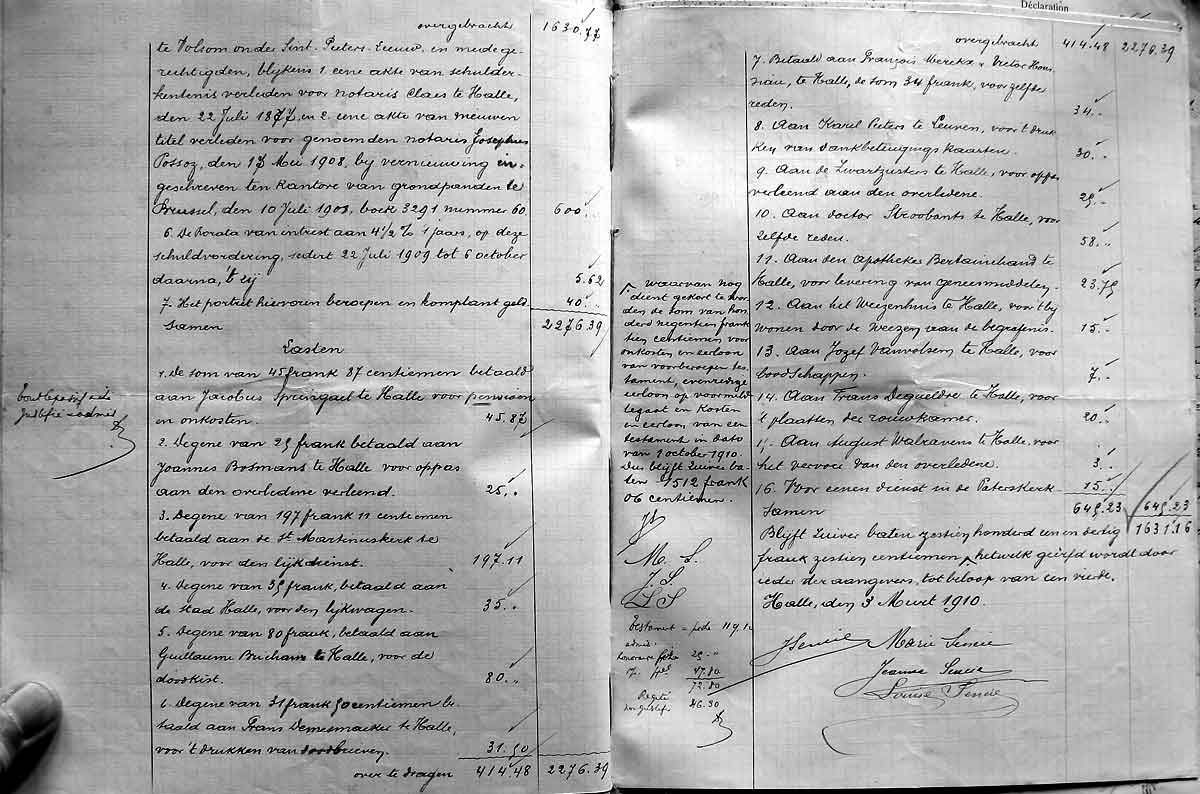 overgebracht 1630.77
te Volsom onder Sint. Pieters-Leeuw, in mede ge-
rechtigden, blijkens 1. eene akte van schulder-
kentenis verleden voor notaris Claes te Halle,
den 22 Juli 1877, en 2 eene akte van nieuwen
titel verleden voor genoemden notaris Josephus
Possoz, den 17 Mei 1908, bij vernieuwing in-
geschreven ten kantore van grondpanden te
Brussel, den 10 Juli 1908, boek 3291 nummer 60. 600..
6. De Porata van intrest aan 4 1/2 % 1 jaars, op deze
schuldvordering, sedert 22 Juli 1909 tot 6 october
daarna, 't zij 5.62
7. Het portret hiervoren beroepen en komptant geld 40..
Samen 2276.39
Lasten
1. De som van 45 frank 87 centiemen betaald
aan Jacobus Springael te Halle voor pensioen
en onkosten. 45.87
2. Degene van 25 frank betaald aan
Joannes Bosmans te Halle voor oppas
aan den overledene verleend. 25..
3. Degene van 197 frank 11 centiemen
betaald aan de St Martinuskerk te
Halle, voor den lijkdienst. 197.11
4. Degene van 35 frank, betaald aan
de stad Halle, voor den lijkwagen. 35..
5. Degene van 80 frank, betaald aan
Guillaume te Halle, voor de
doodkist. 80..
6. Degene van 31 frank 50 centiemen be-
taald aan Frans Demesmaeker te Halle,
voor 't drukken van doodbrieven. 31.50
over te dragen 414.48 2276.39
Déclaration
overgebracht 414.48 2276.39
7. Betaald aan François Merckx & Victor Hous-
siau, te Halle, de som 34 frank, voor zelfde
reden. 34..
8. Aan Karel Pieters te Leuven, voor 't druk
ken van dankbetuigings kaarten. 30..
9. Aan de Zwartzusters te Halle, voor oppas
verleend aan den overledene. 25..
10. Aan doctor Stroobants te Halle, voor
zelfde reden. 58..
11. Aan den apotheker te
Halle, voor levering van geneesmiddelen. 23.75
12. Aan het Weezenhuis te Halle, voor 't bij
wonen door de Weezen aan de begrafenis. 15..
13. Aan Jozef Vanvolsem te Halle, voor
boodschappen. 7..
14. Aan Frans Degueldre te Halle, voor
't plaatsen der rouwkamer. 20..
15. Aan August Walravens te Halle, voor
het vervoer van den overledene. 3..
16. Voor eenen dienst in de Paterskerk 15..
Samen 645.23 645.23
Blijft zuiver baten zestien honderd een en dertig 1631.16
frank zestien centiemen hetwelk geërfd wordt door
ieder der aangevers, tot beloop van een vierde.
Halle, den 3 Meurt 1910.
Marie Sencie
Jeanne Sencie
Louise Sencie
waarvan nog
dient gekort te wor
den de som van hon
derd negentien frank
tien centiemen voor
onkosten en eerloon
van voorberoepen tes-
tament, evenredige
eerloon op voormeld
legaat en kosten
en eerloon van een
testament in dato
van 1 october 1910.
Dus blijft zuivere ba-
ten 1512 frank
06 centiemen.
M. S.
J. S
L S
Testament
admis.
25..
47.80
72.80
46.30